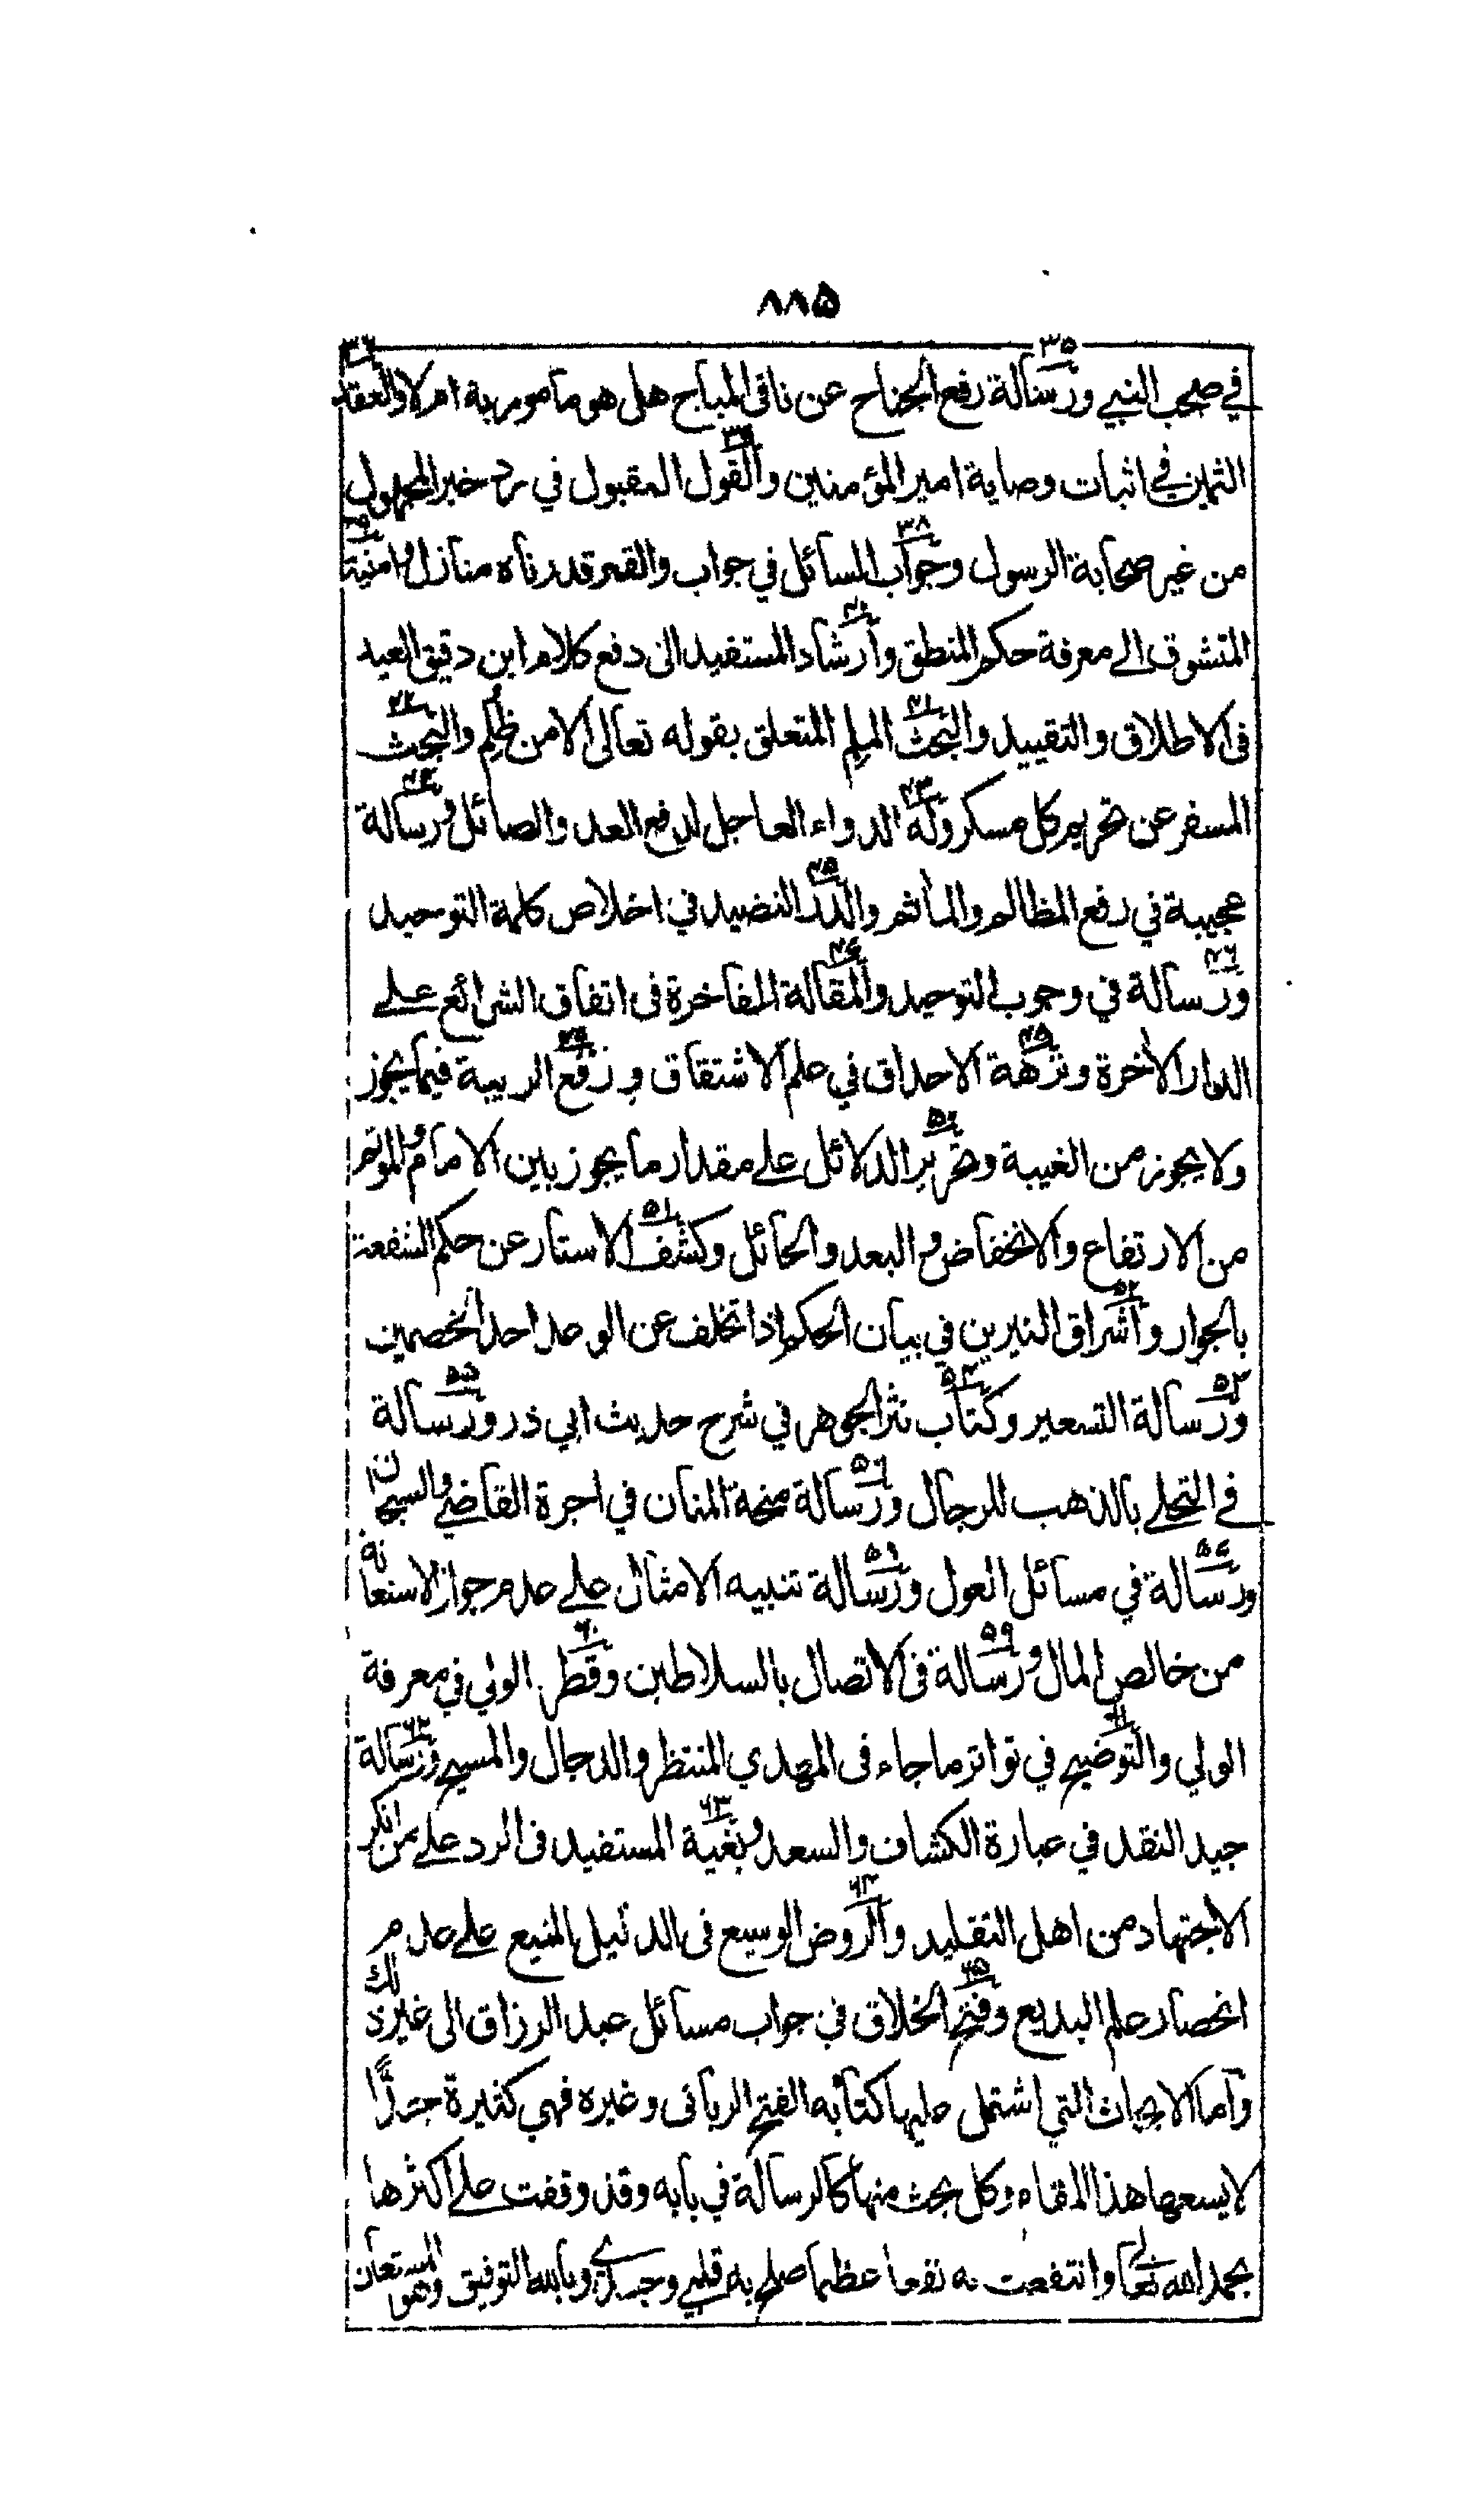 ٨٨٥
في صحب النبي ورسالة رفع الجناح عن نافي المباح هل هو مأمور به ام لا والعقد
الثمين في اثبات وصاية امير المؤمنين والقول المقبول في رد خبر المجهول
من غير صحابة الرسول وجواب السائل في جواب والقمر قدرناه منازل وامنية
المتشوق الى معرفة حكم المنطق وارشاد المستفيد الى دفع كلام ابن دقيق العيد
في الاطلاق والتقييد والبحث الملم المتعلق بقوله تعالى الا من ظلم والبحث
المسفر عن تحريم كل مسكر وله الدواء العاجل لدفع العدو الصائل ورسالة
عجيبة في رفع المظالم والمأثم والدر النضيد في اخلاص كلمة التوحيد
ورسالة في وجوب التوحيد والمقالة الفاخرة في اتفاق الشرائع على
الدار الاخرة ونزهة الاحداق في علم الاشتقاق ورفع الريبة فيما يجوز
ولا يجوز من الغيبة وتحرير الدلائل على مقدار ما يجوز بين الامام والموتم
من الارتفاع والانخفاض والبعد والحائل وكشف الاستار عن حكم الشفعة
بالجوار واشراق النيرين في بيان الحكم اذا تخلف عن الوعد احد الخصمين
ورسالة التسعير وكتاب نثر الجوهر في شرح حديث ابي ذر ورسالة
في التحلي بالذهب للرجال ورسالة منحة المنان في اجرة القاضي والسجان
ورسالة في مسائل العول ورسالة تنبيه الامثال على عدم جواز الاستعانة
من خالص المال ورسالة في الاتصال بالسلاطين وقطر الولي في معرفة
الولي والتوضيح في تواتر ما جاء في المهدي المنتظر والدجال والمسيح ورسالة
جيد النقد في عبارة الكشاف والسعد وبغية المستفيد في الرد على من انكر
الاجتهاد من اهل التقليد والروض الوسيع في الدليل المنيع على عدم
انحصار علم البديع وفتح الخلاق في جواب مسائل عبد الرزاق الى غير ذلك
وأما الابحاث التي اشتمل عليها كتابه الفتح الرباني وغيره فهي كثيرة جدًّا
لا يسعها هذا المقام وكل بحث منها كالرسالة في بابه وقد وقفت على اكثرها
بحمد الله تعالى وانتفعت به نفعا عظيما صلح به قلبي وجسدي وبالله التوفيق وهو المستعان